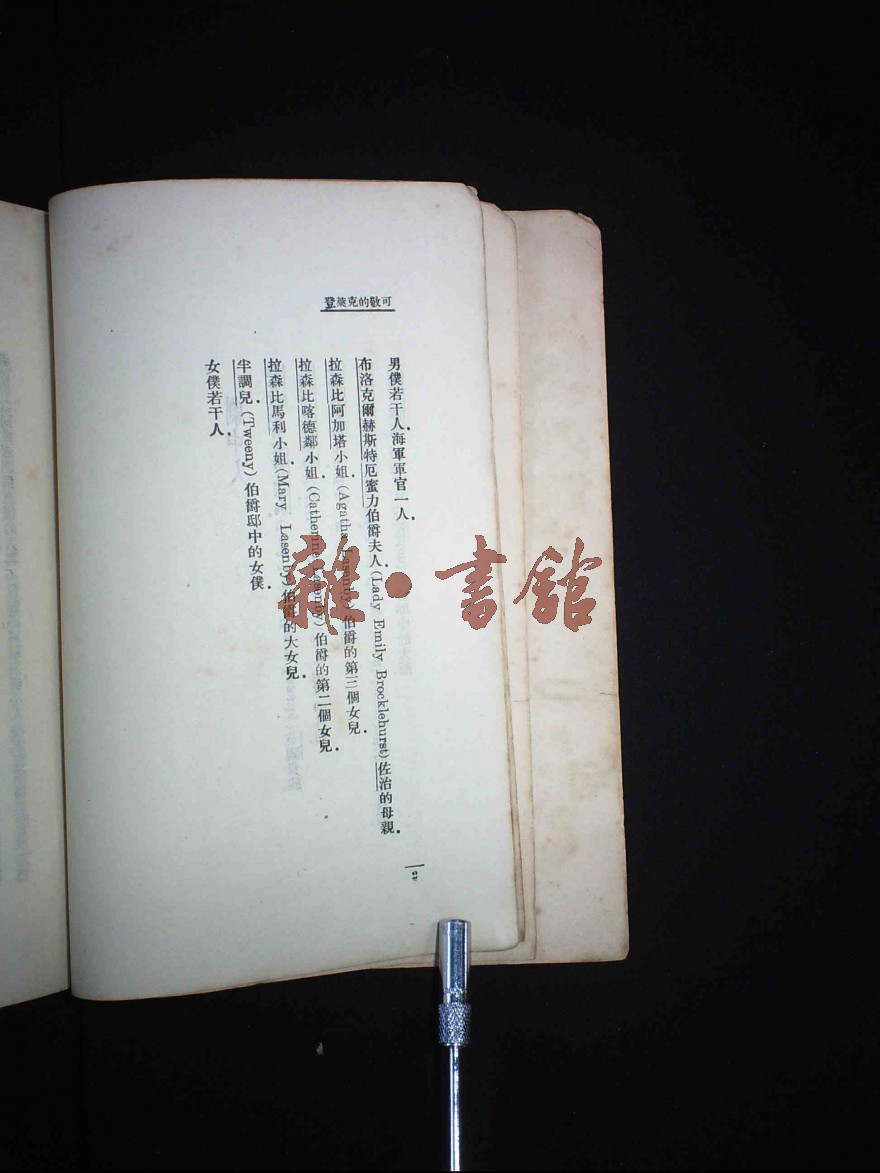 可敬的克萊登
男僕若干人．海軍軍官一人．
布洛克爾赫斯特厄蜜力伯爵夫人(Lady Emily Brocklehurst)佐治的母親．
拉森比阿加塔小姐．(Agatha Lasenby)伯爵的第三個女兒．
拉森比喀德鄰小姐．(Catherine Lasenby)伯爵的第二個女兒．
拉森比馬利小姐．(Mary Lasenby)伯爵的大女兒．
半調兒．(Tweeny)伯爵邸中的女僕．
女僕若干人．
2
雜·書館